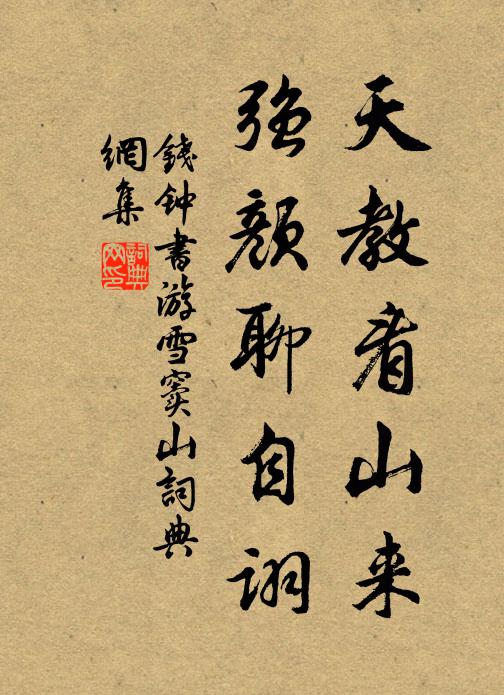 天教看山来
强颜聊自诩
錢钟書游雪窦山詞典
網集
詞典
网印